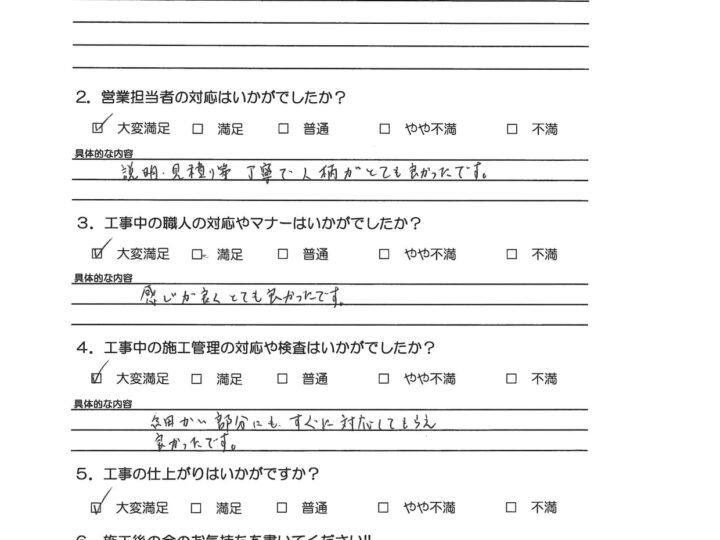 2．営業担当者の対応はいかがでしたか？
☑ 大変満足 □ 満足 □ 普通 □ やや不満 □ 不満
具体的な内容
説明・見積り等 丁寧で人柄がとても良かったです。
3．工事中の職人の対応やマナーはいかがでしたか？
☑ 大変満足 □ 満足 □ 普通 □ やや不満 □ 不満
具体的な内容
感じが良くとても良かったです。
4．工事中の施工管理の対応や検査はいかがでしたか？
☑ 大変満足 □ 満足 □ 普通 □ やや不満 □ 不満
具体的な内容
細かい部分にも、すぐに対応してもらえ
良かったです。
5．工事の仕上がりはいかがですか？
☑ 大変満足 □ 満足 □ 普通 □ やや不満 □ 不満
6．施工後の今のお気持ちを書いてください!!